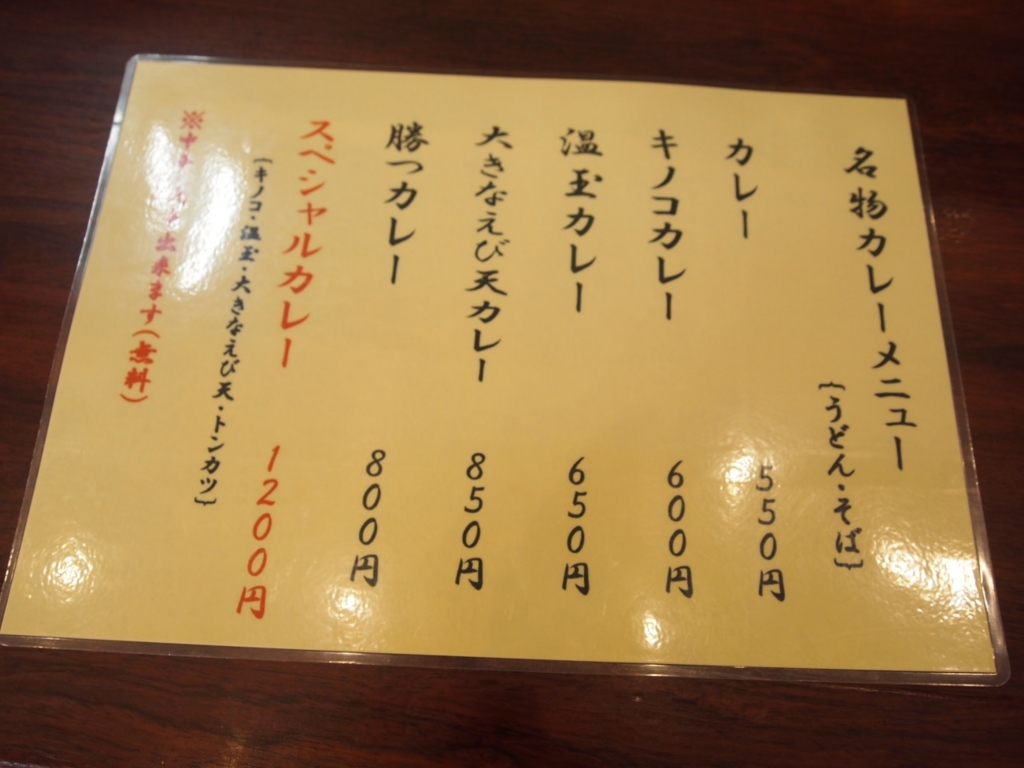 名物カレーメニュー
{うどん・そば}
カレー 550円
キノコカレー 600円
温玉カレー 650円
大きなえび天カレー 850円
勝つカレー 800円
スペシャルカレー 1200円
{キノコ・温玉・大きなえび天・トンカツ}
※ 出来ます(無料)